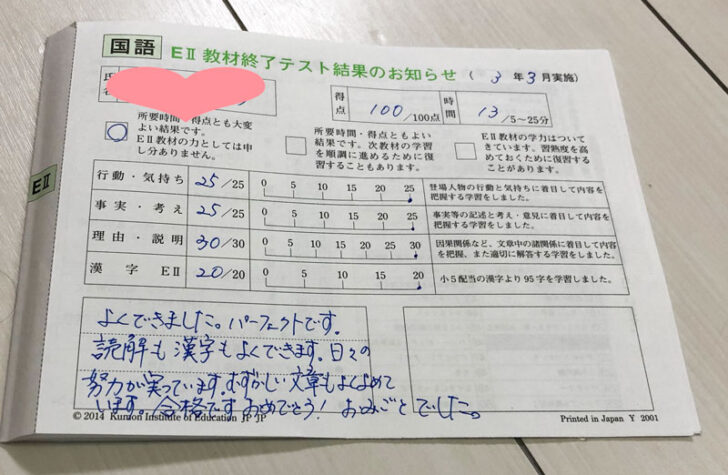 国語 EⅡ教材終了テスト結果のお知らせ ( 3 年 3 月実施)
氏名
得点 100/100点 時間 13/5~25分
○ 所要時間・得点とも大変
よい結果です。
EⅡ教材の力としては申
し分ありません。
所要時間・得点ともよい
結果です。次教材の学習
を順調に進めるために復
習することもあります。
EⅡ教材の学力はついて
きています。習熟度を高
めておくために復習する
ことがあります。
EⅡ
行動・気持ち 25/25 0 5 10 15 20 25 登場人物の行動と気持ちに着目して内容を
把握する学習をしました。
事実・考え 25/25 0 5 10 15 20 25 事実等の記述と考え・意見に着目して内容を
把握する学習をしました。
理由・説明 30/30 0 5 10 15 20 25 30 因果関係など、文章中の諸関係に着目して内容
を把握、また適切に解答する学習をしました。
漢字 EⅡ 20/20 0 5 10 15 20 小5配当の漢字より95字を学習しました。
よくできました。パーフェクトです。
読解も漢字もよくできます。日々の
努力が実っています。むずかしい文章もよくよめて
います。合格です おめでとう! おみごとでした。
© 2014 Kumon Institute of Education JP JP
Printed in Japan Y 2001